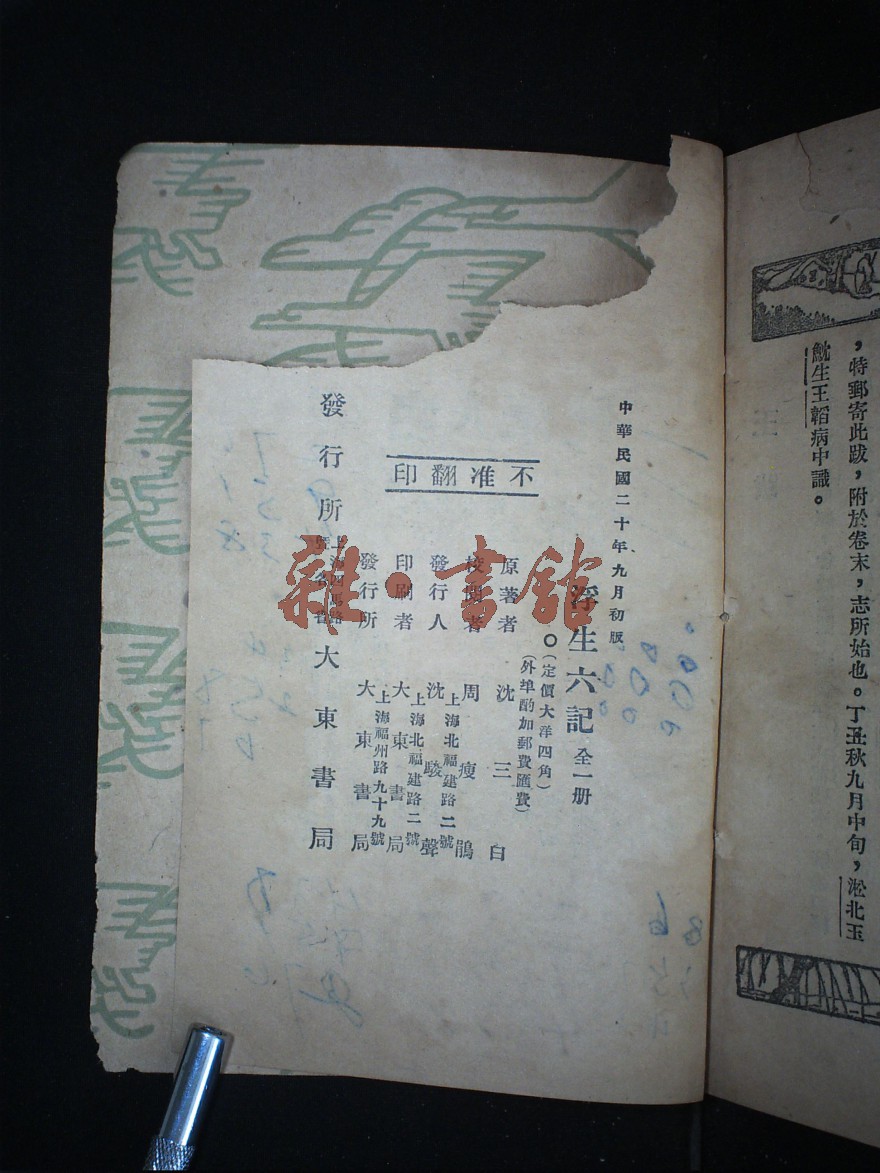 ，特郵寄此跋，附於卷末，志所始也。丁丑秋九月中旬，淞北玉
魫生王韜病中識。
中華民國二十年九月初版
浮生六記 全一册
。（定價大洋四角）
（外埠酌加郵費匯費）
不准翻印
原著者 沈三白
校閱者 周瘦鵑
發行人 沈駿聲
上海北福建路二號
印刷者 大東書局
上海北福建路二號
發行所 大東書局
上海福州路九十九號
發行所 上海四馬路 大東書局
雜·書館